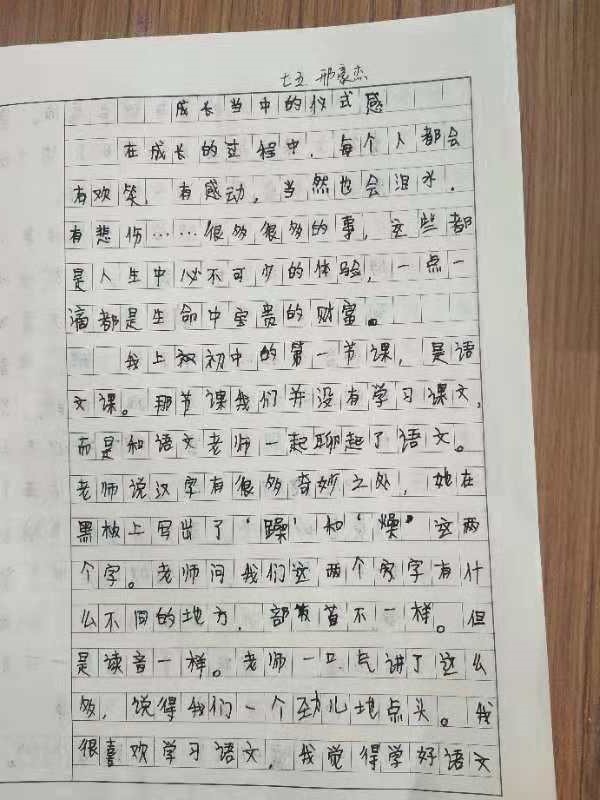 七五 邢豪杰
成长当中的仪式感
在成长的过程中，每个人都会
有欢笑，有感动，当然也会泪水，
有悲伤……很多很多的事，这些都
是人生中必不可少的体验，一点一
滴都是生命中宝贵的财富。
我上初中的第一节课，是语
文课。那节课我们并没有学习课文，
而是和语文老师一起聊起了语文。
老师说汉字有很多奇妙之处，她在
黑板上写出了“躁”和“燥”这两
个字。老师问我们这两个字有什
么不同的地方，部首不一样。但
是读音一样。老师一口气讲了这么
多，说得我们一个劲儿地点头。我
很喜欢学习语文，我觉得学好语文